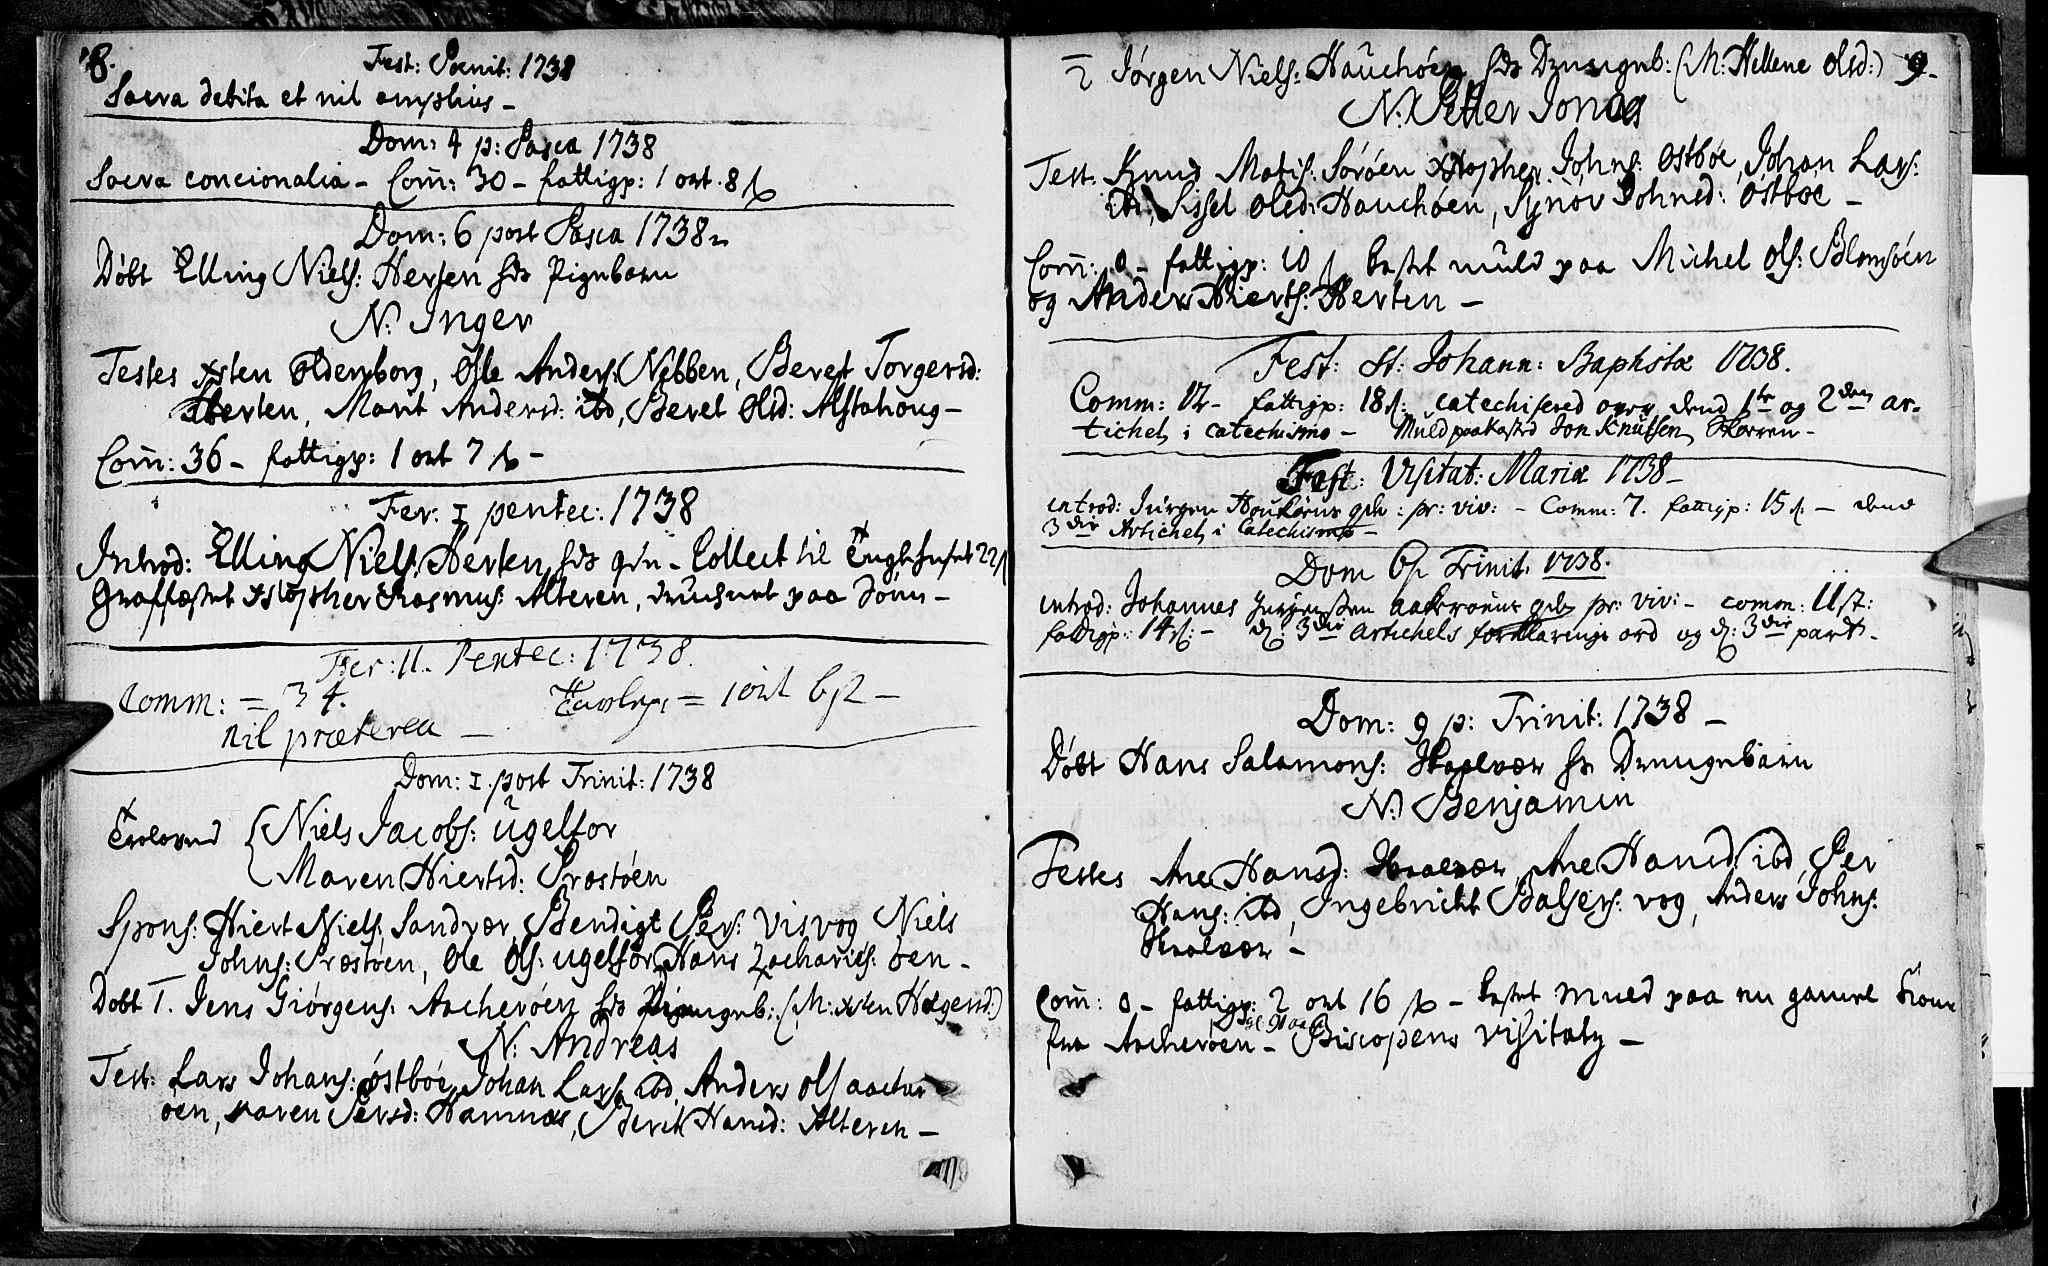 8.
Fest: Poenit: 1738
Sacra debita et nil amplius –
Dom: 4 p: Pasca 1738
Sacra concionalia – Com̄: 30 – fattigp: 1 ort. 8 s
Dom: 6 post Pasca 1738
Døbt Elling Niels: Herten hds Pigebarn
N: Inger
Testes xsten Oldenborg, Ole Anders: Nibben, Beret Torgersd:
Herten, Marit Andersd: ibd, Beret Olsd: Alstahoug –
Com̄: 36 – fattigp: 1 ort 7 s –
Fer: I pentec: 1738
Introd: Elling Niels: Herten hds qv – Collect til Tugthuset 22 s
Graffæstet xstopher Rasmus: Alteren, druchnet paa
Fer: II. Pentec: 1738.
Comm: = 34. = 1 ort 6 s –
nil præterea –
Dom: I. post Trinit: 1738
Troloved { Niels Jacobs: Ugelfor
Maren Hiertsd: Præstøen
Spons: Hiert Niels: Sandvær, Bendigt Pers: Visvog Niels
Johns: Præstøen, Ole Ols: Ugelfor, Hans Zacharies: øen –
Døbt T. Jens Giörgens: Aacherøen hds Drengeb: (M: xsten Holgersd:)
N: Andreas
Test: Lars Johans: Østboe, Johan Lars: ibd, Anders Ols aacher
øen, Maren Persd: Hamnæs, Berit Hansd: Alteren –
9.
2 Jørgen Niels: Hauchøen hds Drengeb: (M: Hellene Olsd:)
N: Petter Jonas
Test: Knud Matis: Sørøen xstopher Johns: Østboe, Johan Lars:
ibd, Sissel Olsd: Hauchøen, Synøv Johnsd: Østboe –
Com̄: 0 – fattigp: 10 s kastet muld paa Michel Ols: Blomsøen
og Anders Hierts: Herten –
Fest: St: Johann: Baptistæ 1738.
Comm: 12 – fattigp: 18 s: catechisered over dend 1te og 2den ar-
tichel i catechismo – Muld paakasted Jon Knutsen
Fest: Visitat: Mariæ 1738 –
introd: Jürgen : pr: viv: – Comm: 7. fattigp: 15 s: – dend
3die Artichel i Catechismo –
Dom 6 p Trinit. 1738.
introd: Johannes Jürgensen pr: viv: – comm: 11 st:
fattigp: 14 s: – d: 3die artichels forklarings ord og d: 3die part –
Dom: 9 p: Trinit: 1738 –
Døbt Hans Salamons: Skaalvær hs Drengebarn
N: Benjamin
Testes Ane Hansd: Skaalvær, Ane Hansd ibd, Per
Hans: ibd, Ingebricht Balsers: vog, Anders Johns:
Skaalvær –
Com̄: 0 – fattigp: 2 ort 16 s – kastet Muld paa en gamel kone
fra Aacherøen – Biscopens visitatz –